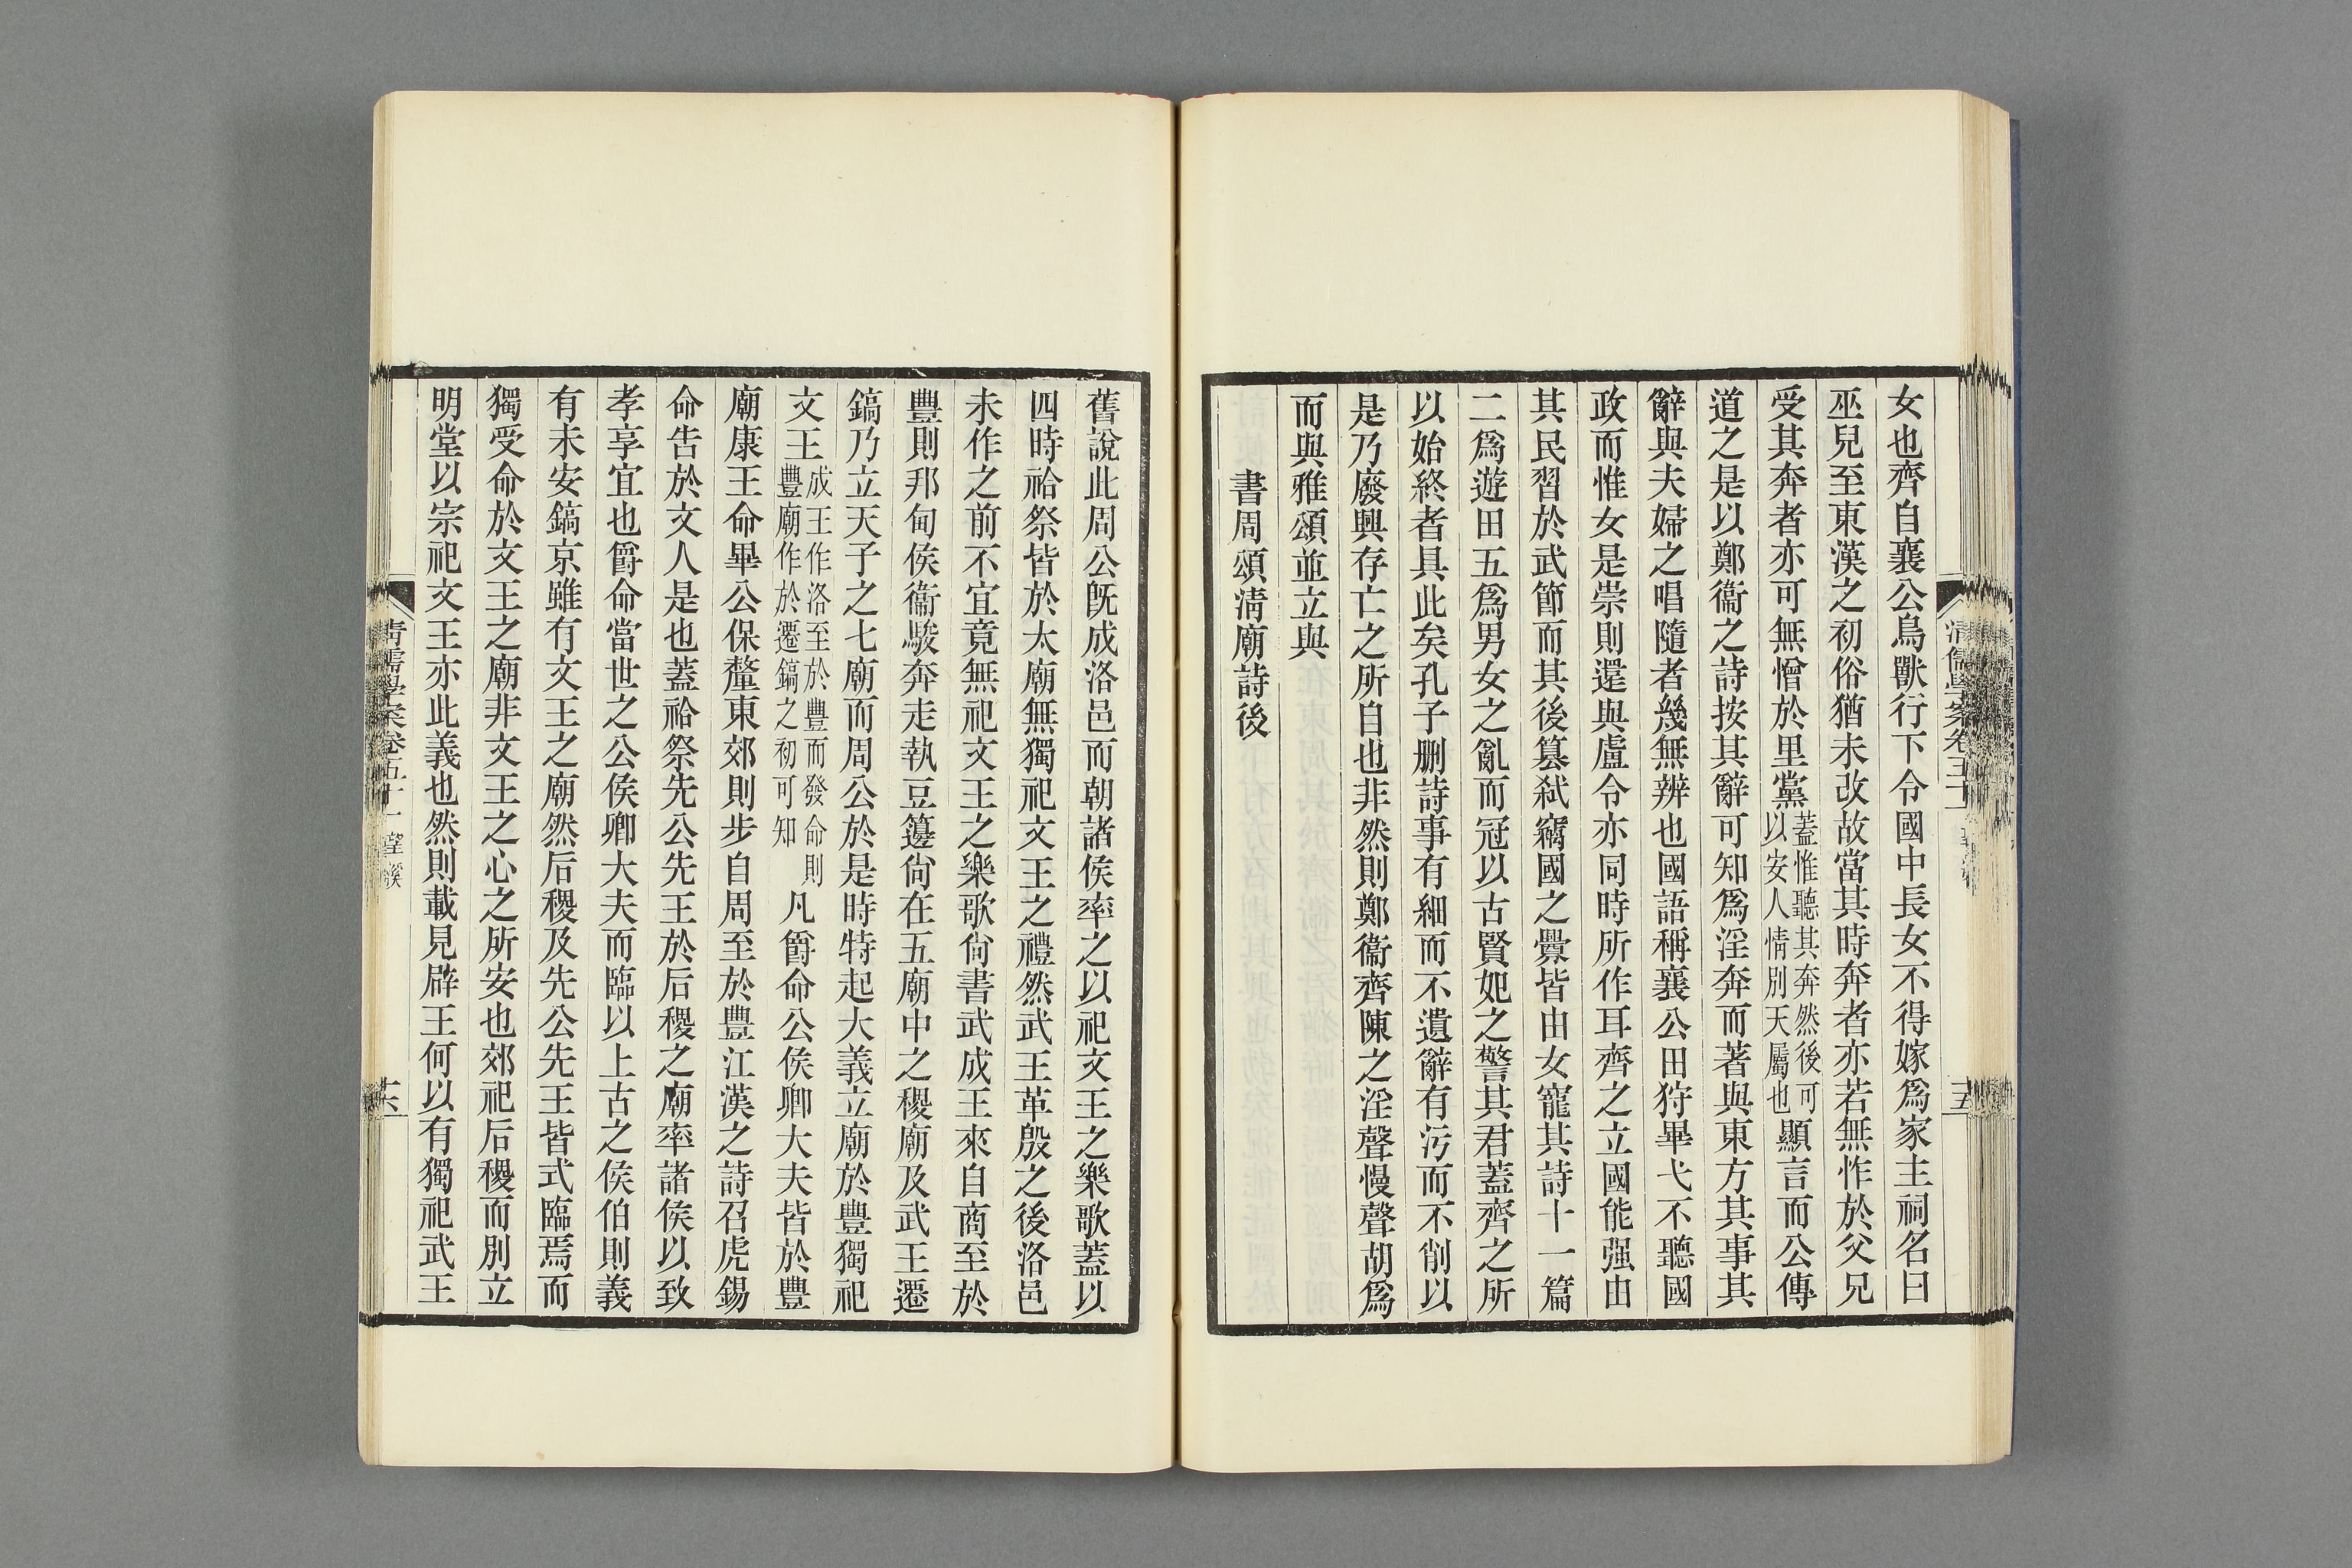 女也齊自襄公鳥獸行下令國中長女不得嫁爲家主祠名曰
巫兒至東漢之初俗猶未改故當其時奔者亦若無怍於父兄
受其奔者亦可無憎於里黨蓋惟聽其奔然後可以安人情別天屬也顯言而公傳
道之是以鄭衞之詩按其辭可知爲淫奔而著與東方其事其
辭與夫婦之唱隨者幾無辨也國語稱襄公田狩畢弋不聽國
政而惟女是崇則還與盧令亦同時所作耳齊之立國能强由
其民習於武節而其後篡弒竊國之釁皆由女寵其詩十一篇
二爲遊田五爲男女之亂而冠以古賢妃之警其君蓋齊之所
以始終者具此矣孔子刪詩事有細而不遺辭有污而不削以
是乃廢興存亡之所自也非然則鄭衞齊陳之淫聲慢聲胡爲
而與雅頌並立與
書周頌淸廟詩後
舊說此周公旣成洛邑而朝諸侯率之以祀文王之樂歌蓋以
四時祫祭皆於太廟無獨祀文王之禮然武王革殷之後洛邑
未作之前不宜竟無祀文王之樂歌尙書武成王來自商至於
豐則邦甸侯衞駿奔走執豆籩尙在五廟中之稷廟及武王遷
鎬乃立天子之七廟而周公於是時特起大義立廟於豐獨祀
文王成王作洛至於豐而發命則豐廟作於遷鎬之初可知凡爵命公侯卿大夫皆於豐
廟康王命畢公保釐東郊則步自周至於豐江漢之詩召虎錫
命告於文人是也蓋祫祭先公先王於后稷之廟率諸侯以致
孝享宜也爵命當世之公侯卿大夫而臨以上古之侯伯則義
有未安鎬京雖有文王之廟然后稷及先公先王皆式臨焉而
獨受命於文王之廟非文王之心之所安也郊祀后稷而別立
明堂以宗祀文王亦此義也然則載見辟王何以有獨祀武王
清儒學案卷五十一 望溪
十六